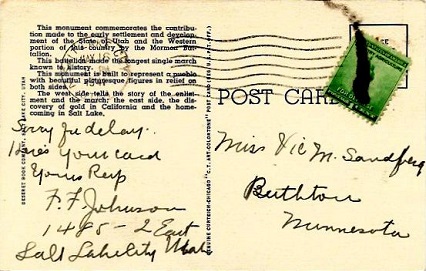 This monument commemorates the contribu-
tion made to the early settlement and devel-
opment of the State of Utah and the Western
portion of this country by the Mormon Bat-
talion.
This battalion made the longest single march
known to history.
This monument is built to represent a pueblo
with beautiful picturesque figures in relief on
both sides.
The west side tells the story of the enlist-
ment and the march; the east side, the dis-
covery of gold in California and the home-
coming in Salt Lake.
DESERET BOOK COMPANY, SALT LAKE CITY, UTAH
Sorry for delay.
Here's your card
Yours Resp
F. F. Johnson
1485 - 2 East
Salt Lake City Utah
GENUINE CURTEICH-CHICAGO "C.T. ART-COLORTONE" POST CARD (REG. U.S. PAT. OFF.)
POST CARD
Miss Vic M. Sandberg
Minnesota